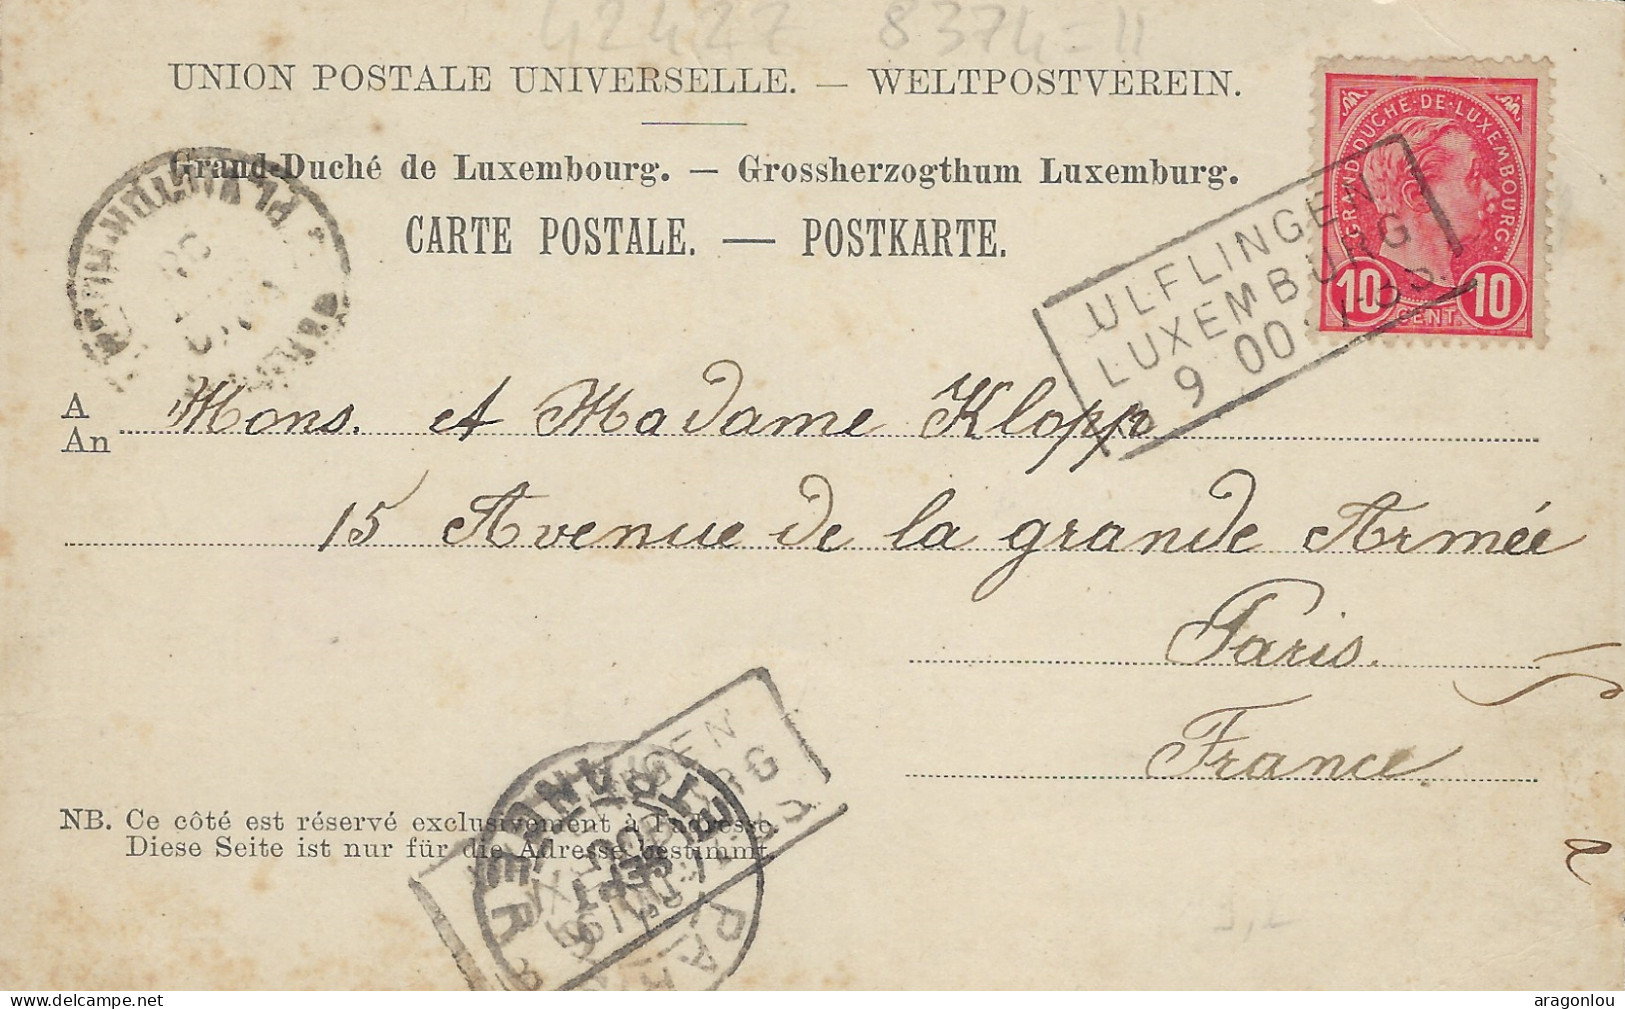 42427 8374=11
UNION POSTALE UNIVERSELLE. — WELTPOSTVEREIN.
Grand-Duché de Luxembourg. — Grossherzogthum Luxemburg.
CARTE POSTALE. — POSTKARTE.
GRAND-DUCHÉ-DE-LUXEMBOURG.
10 CENT. 10
ULFLINGEN
LUXEMBURG
9 00
A
An
Mons. et Madame Klopp
15 Avenue de la grande Armée
Paris.
France.
NB. Ce côté est réservé exclusivement à l'adresse.
Diese Seite ist nur für die Adresse bestimmt.
PARIS
ETRANGER
delcampe.net
aragonlou